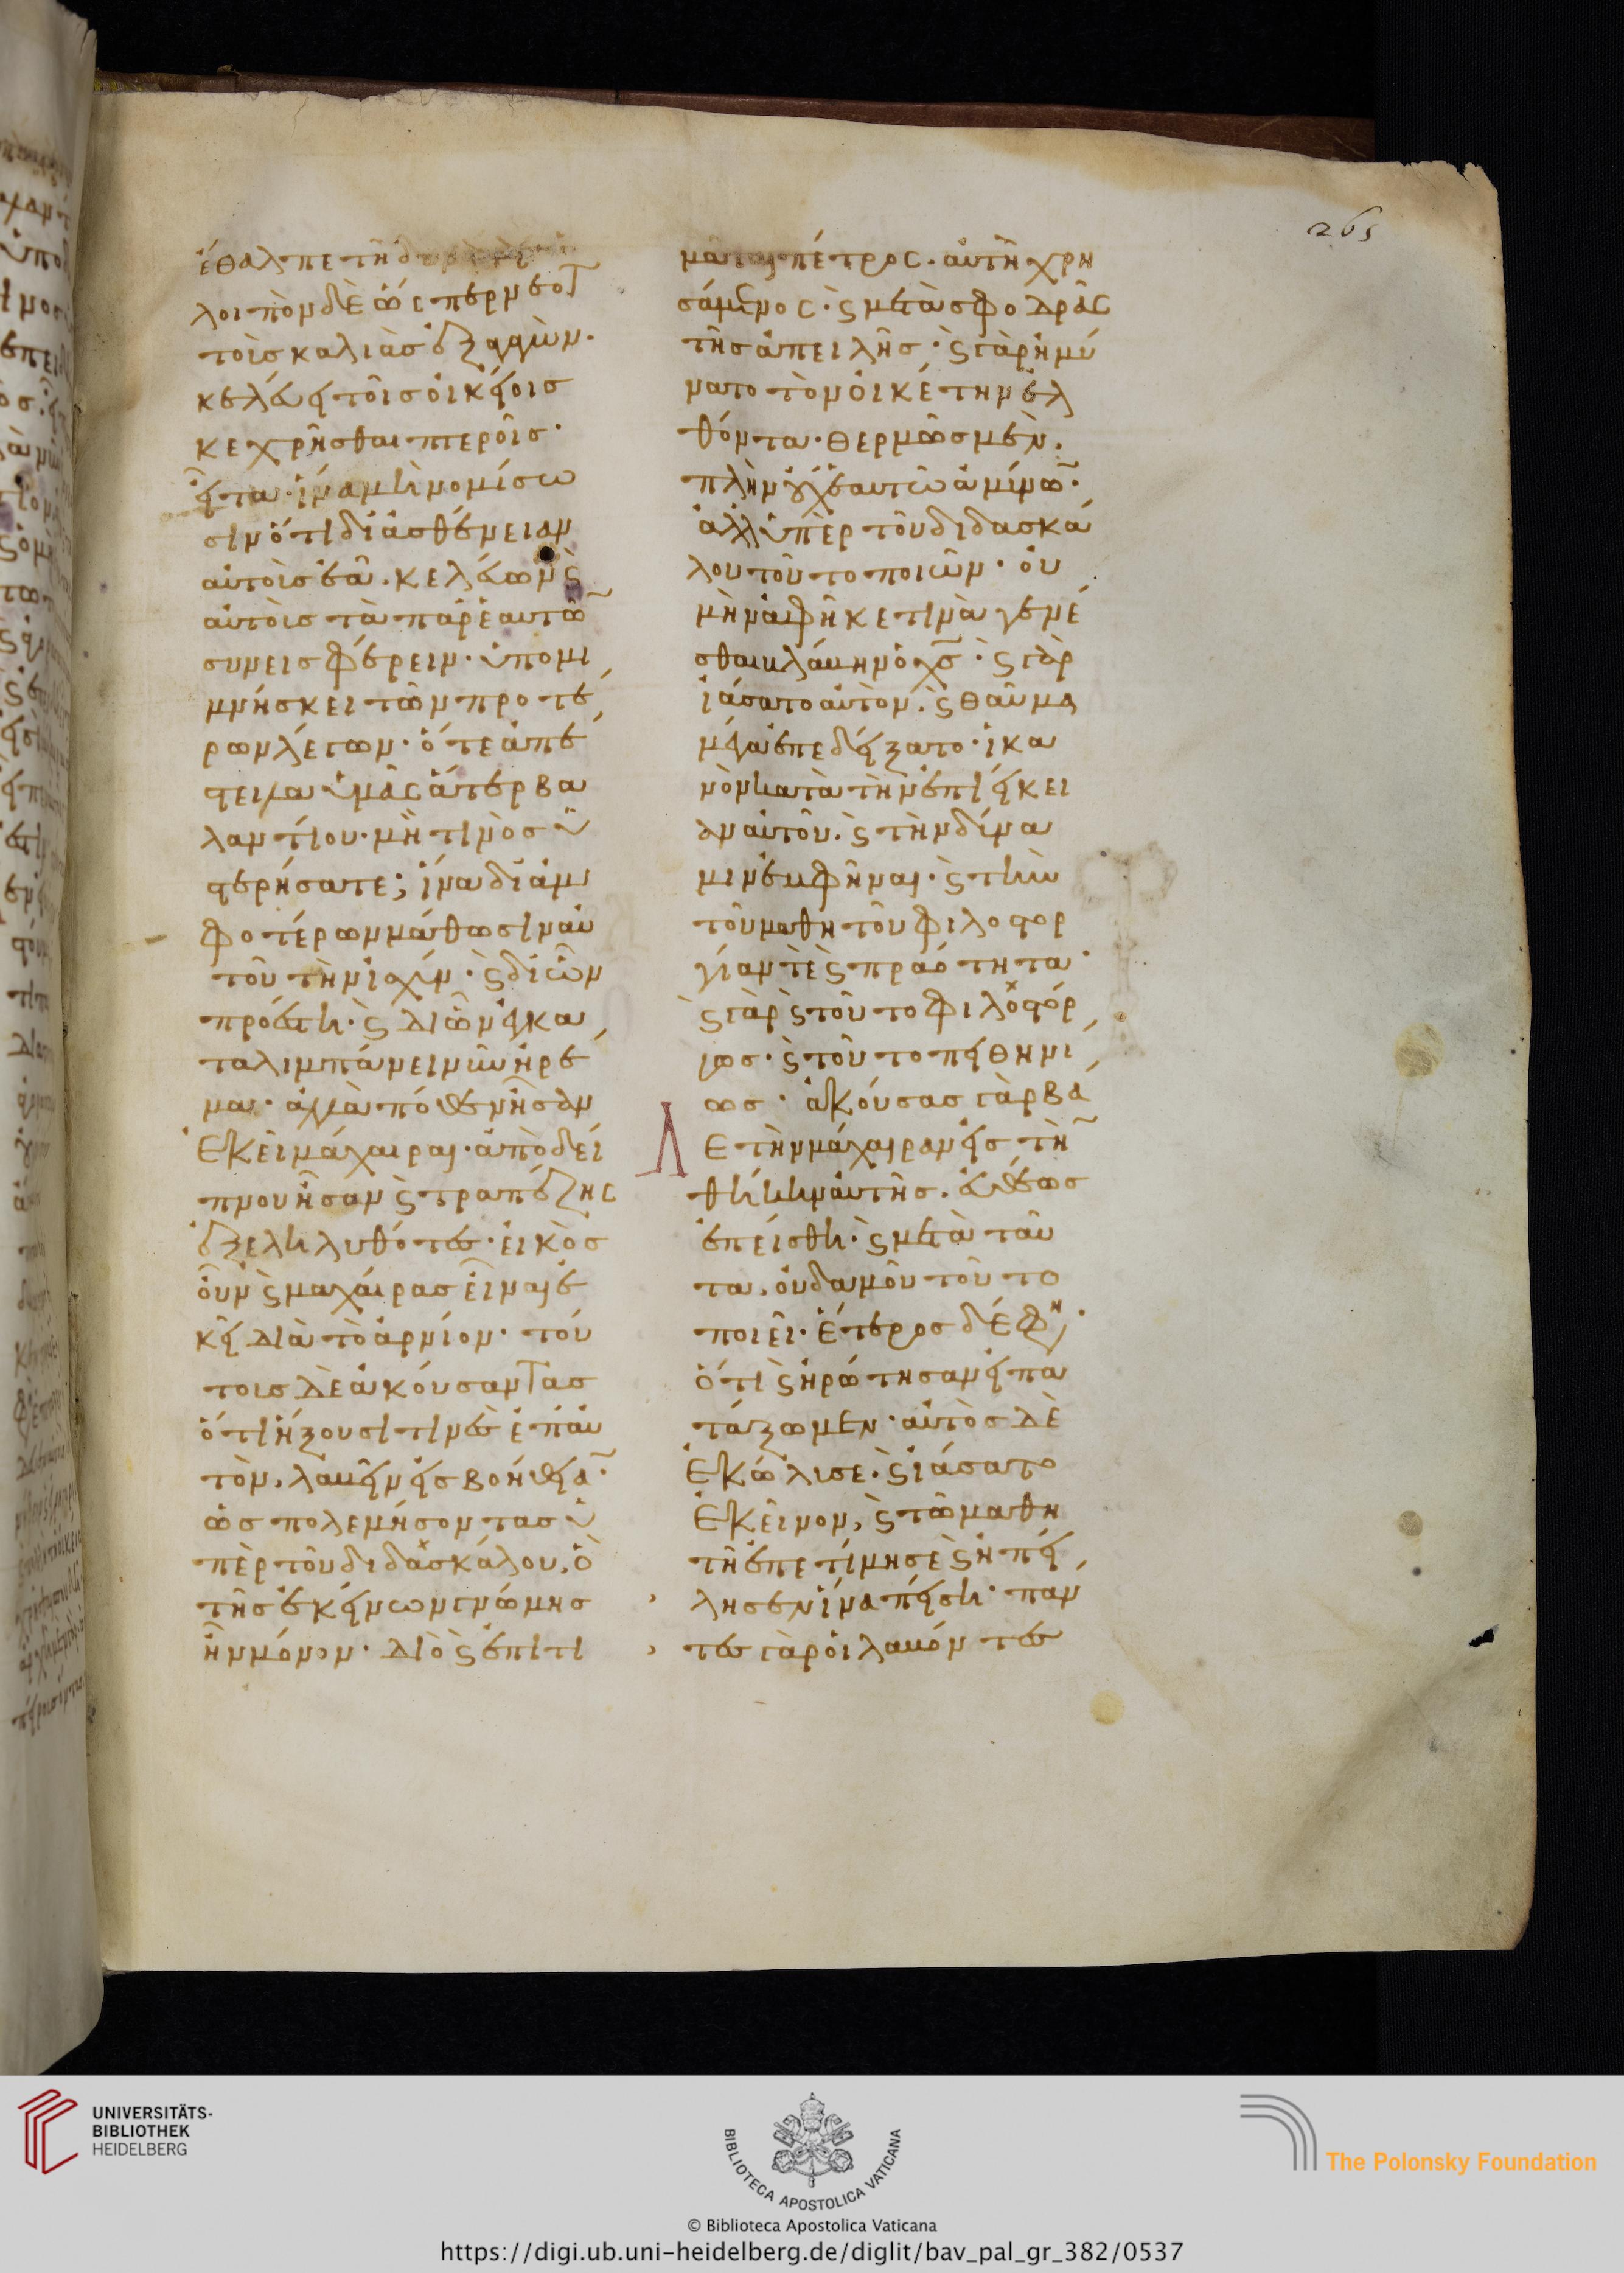 265
ἔθαλπε τῆ
λοιπὸν δὲ ὥσπερ νεοτ
τοὺς καλιᾶς ἐξαγαγὼν.
κελεύει τοῖς οἰκείοις
κεχρῆσθαι πτεροῖς·
εἶτα ἵνα μὴ νομίσω
σιν ὅτι δι' ἀσθένειαν
αὐτοὺς ἐᾷ. κελεύων ϛ
αὐτοὺς τὰ παρ' ἑαυτῶ
συνεισφέρειν· ὑπομι
μνήσκει τῶν προτέ
ρων λέγων· ὅτε ἀπέ
στειλα ὑμᾶς ἄτερ βα
λαντίου· μή τινος ὑ
στερήσατε; ἵνα δι' ἀμ
φοτέρων μάθωσιν αὐ
τοῦ τὴν ἰσχύν· ϛ δι' ὧν
προέστη· ϛ δι' ὧν
ταλιμπάνειν ἠρέ
μα· ἀλλὰ πόθεν ἦσαν
ἐκεῖ μάχαιραι· ἀπὸ δεί
πνου ἦσαν ϛ τραπέζης
ἐξεληλυθότες· εἰκὸς
οὖν ϛ μαχαίρας εἶναι ἐ
κεῖ διὰ τὸ ἀρνίον· τού
τοις δὲ ἀκούσαντας
ὅτι ἥξουσί τινες ἐπ' αὐ
τὸν, λαβεῖν εἰς βοήθεια
ὡς πολεμήσοντας ὑ
πὲρ τοῦ διδασκάλου, ὃ
τῆς ἐκείνων γνώμης
ἦν μόνον· διὸ ϛ ἐπιτι
μᾶται πέτρος. αὐτῆ χρη
σάμενος· ϛ μετὰ σφοδρᾶς
τῆς ἀπειλῆς· ϛ γὰρ ἠμύ
νατο τὸν οἰκέτην ἐλ
θόντα· θερμῶς μὲν.
πλὴν οὐχ ἑαυτῶ ἀμύνω·
ἀλλ' ὑπὲρ τοῦ διδασκά
λου τοῦτο ποιῶν· οὐ
μὴν ἀφῆκε τινὰ γενέ
σθαι βλάβην ὁ χς· ϛ γὰρ
ἰάσατο αὐτὸν. ϛ θαῦμα
μέγα ἐπεδείξατο· ἱκα
νὸν κατὰ τὴν ἐπιείκει
αν αὐτοῦ. ϛ τὴν δύνα
μιν ἐκφῆναι· ϛ τὴν
τοῦ μαθητοῦ φιλοστορ
γίαν τὲ ϛ πραότητα·
ϛ γὰρ ϛ τοῦτο φιλοστόρ
γως· ϛ τοῦτο πειθηνί
ως· ἀκούσας γὰρ βά
λε τὴν μάχαιραν εἰς τὴ
θήκην αὐτῆς. εὐθέως
ἐπείσθη· ϛ μετὰ ταῦ
τα, οὐδαμοῦ τοῦτο
ποιεῖ· ἕτερος δέ φην·
ὅτι ϛ ἠρώτησαν εἰ πα
τάξωμεν· αὐτὸς δὲ
ἐκώλυσε· ϛ ἰάσατο
ἐκεῖνον, ϛ τῶ μαθη
τῆ ἐπετίμησε ϛ ἠπεί
λησεν ἵνα πείση· πάν
τες γὰρ οἱ λαβόντες
UNIVERSITÄTS-
BIBLIOTHEK
HEIDELBERG
BIBLIOTECA APOSTOLICA VATICANA
© Biblioteca Apostolica Vaticana
The Polonsky Foundation
https://digi.ub.uni-heidelberg.de/diglit/bav_pal_gr_382/0537